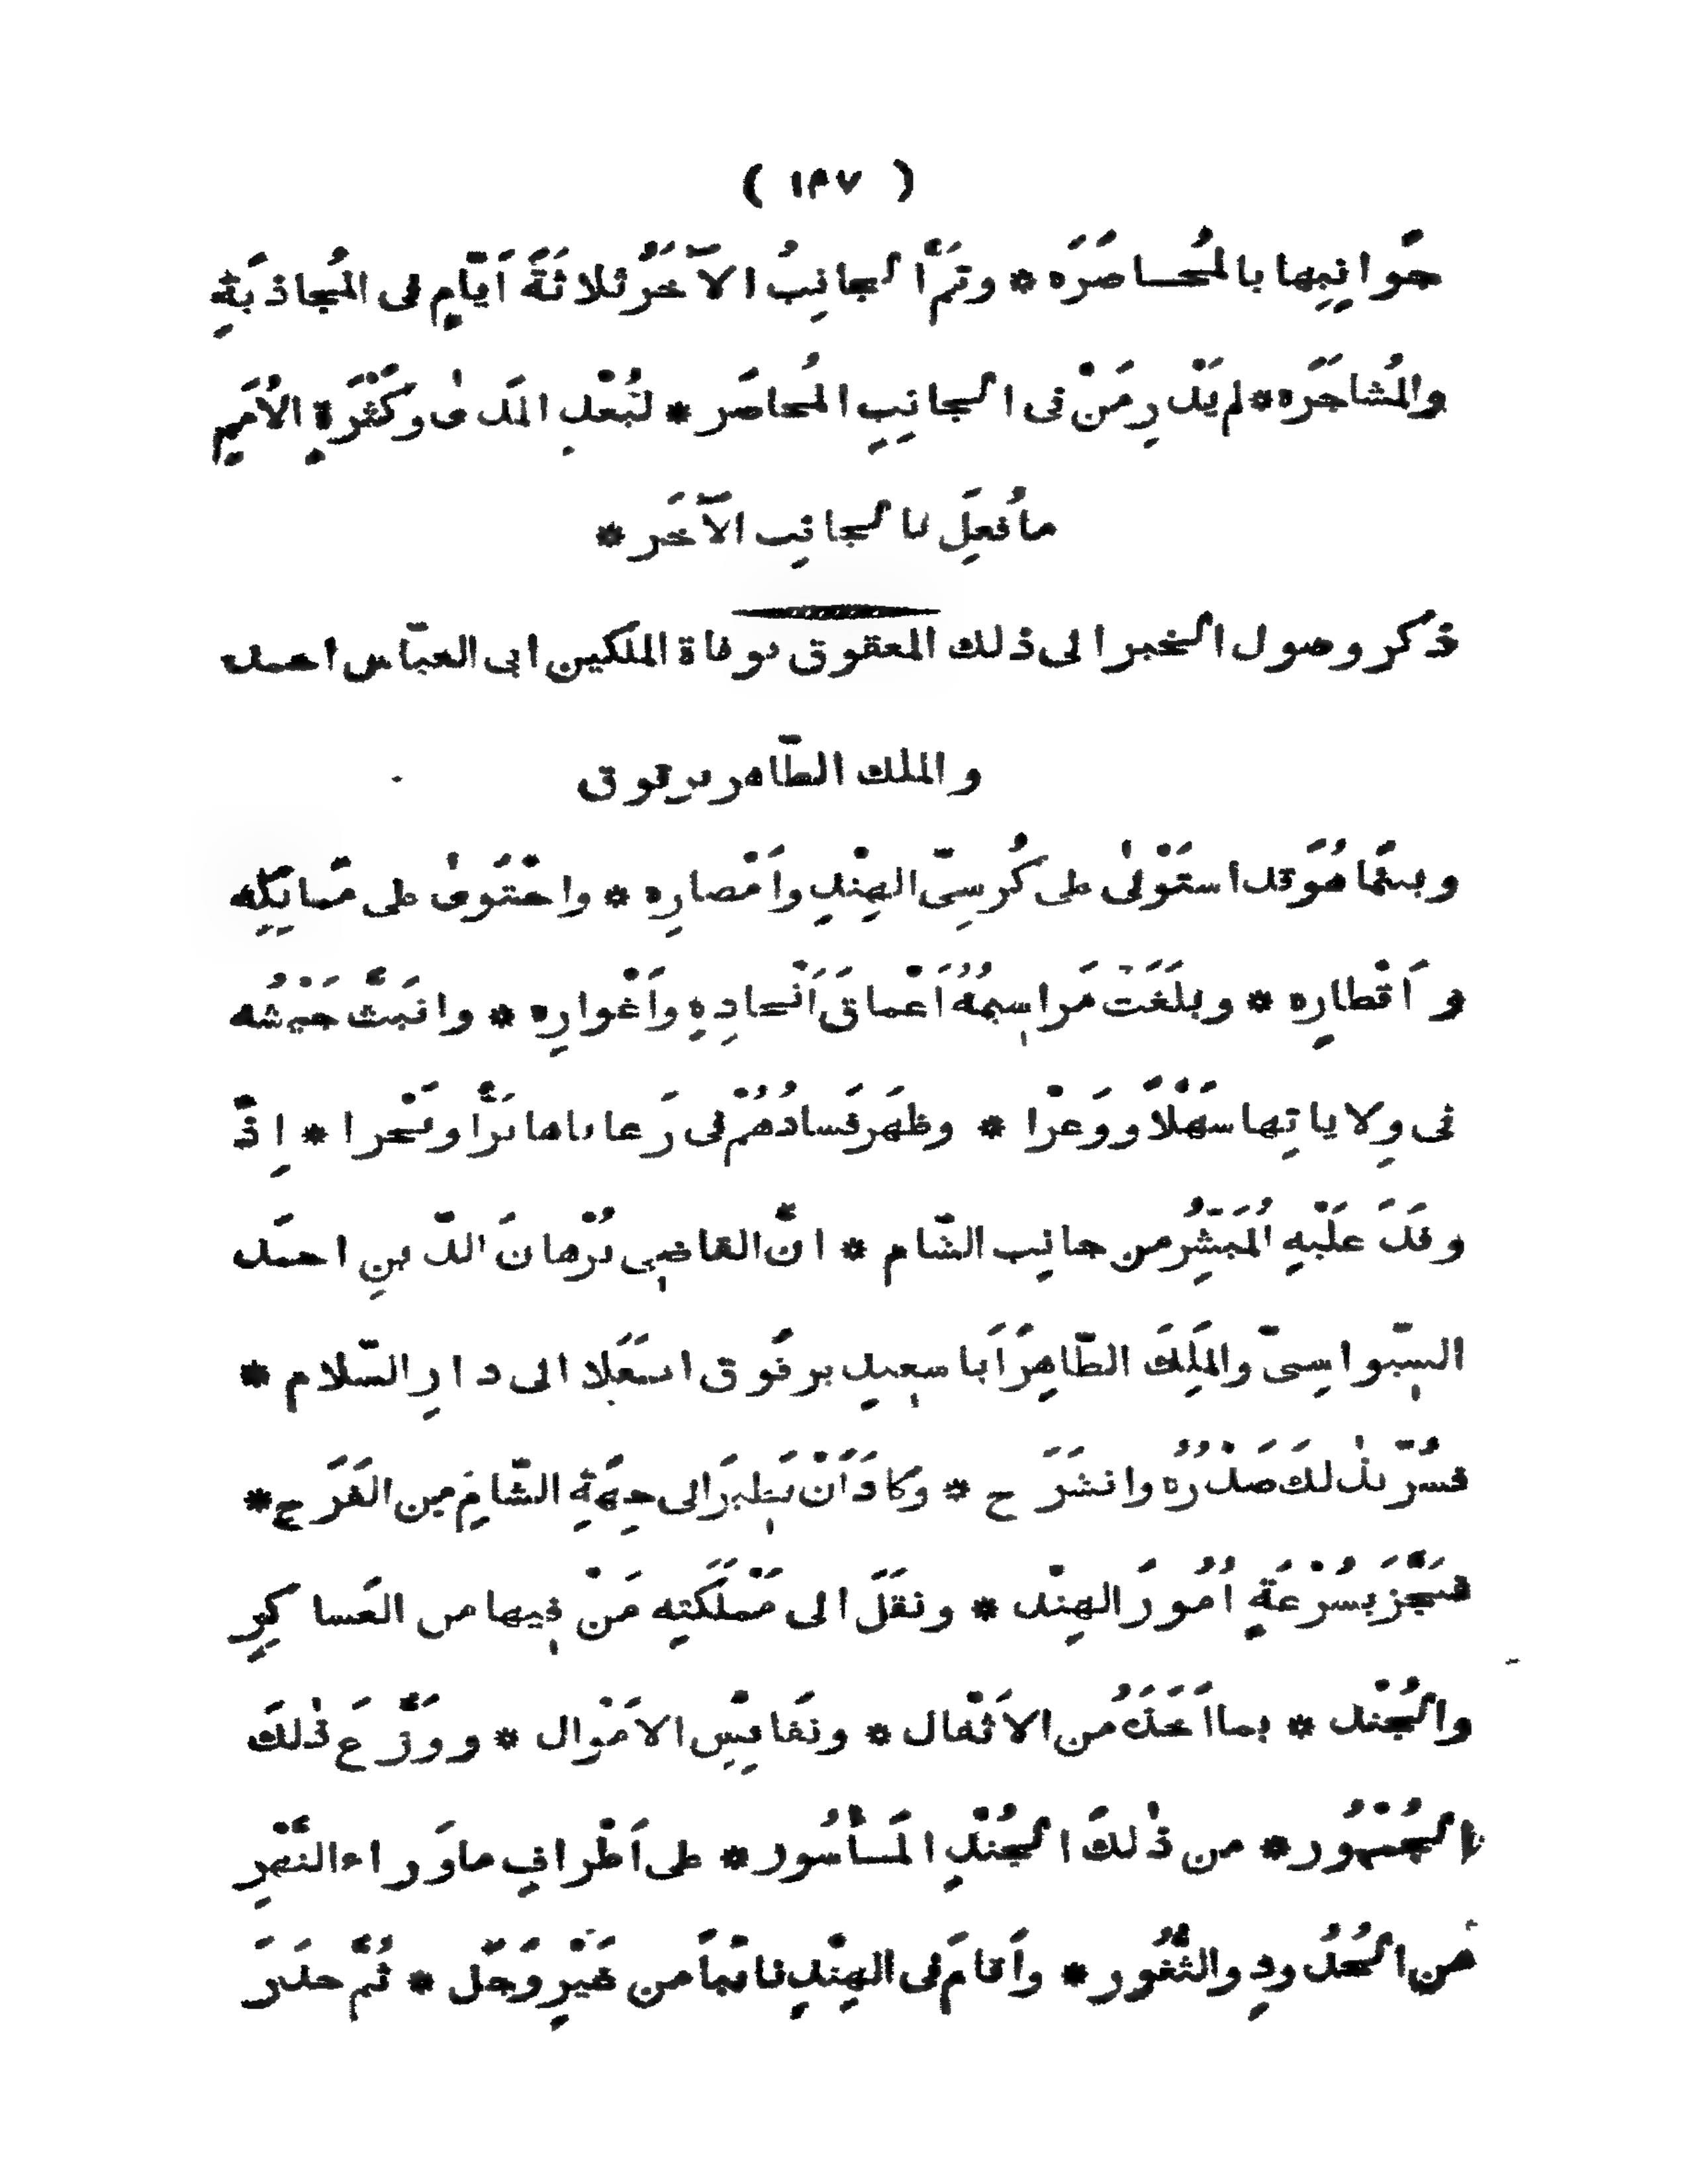 ( ١٣٧ )
جَوانِبِها بالمُحاصَرَه * وتَمَّ الجانِبُ الآخَرُ ثلاثَةَ اَيّامٍ فى المُجاذبَةِ
والمُشاجَرَه * لم يَدْرِ مَنْ فى الجانِبِ المُحاصَر * لبُعْدِ المَدىٰ وكَثْرَةِ الاُمَمِ
ما فُعِلَ بالجانِب الآخَر *
ذكر وصول الخبر الى ذلك المعقوق بوفاة الملكين ابى العبّاس احمد
والملك الظّاهر برقوق
وبينَما هُوَ قد استَوْلىٰ على كُرسِىّ الهِنْدِ واَمْصارِه * واحْتَوىٰ على مَمالِكِه
واَقْطارِه * وبلَغَت مَراسِيمُهُ اَعْماقَ اَنْجادِهِ واَغْوارِه * وانبَثَّ جَيْشُه
فى وِلاياتِها سَهْلاً ووَعرْا * وظهَر فَسادُهُمْ فى رَعاياها بَرّاً وبَحْرا * اِذْ
وفَدَ علَيْهِ المُبَشِّرُ من جانِب الشّام * انَّ القاضِى بُرْهانَ الدّينِ احمَد
السِّيواسِىّ والمَلِكَ الظّاهِرَ اَبا سعِيدٍ برقُوق انتَقَلا الى دارِ السّلام *
فسُرَّ بذٰلك صَدْرُهُ وانشَرَح * وكادَ اَنْ يَطِيرَ الى جِهَةِ الشّامِ مِن الفَرَح *
فنَجَّزَ بسُرْعَةٍ اُمُورَ الهِنْد * ونقَلَ الى مَمْلَكَتِه مَنْ فِيها من العَساكِرِ
والجُنْد * بما اَخَذَهُ من الاَثْقال * ونَفائِسِ الاَمْوال * ووَزَّعَ ذٰلكَ
الجُمْهُور * من ذٰلكَ الجُنْدِ المَأْسُور * على اَطْرافِ ماوَراء النّهْرِ
من الحُدُودِ والثُّغُور * واَقامَ فى الهِنْدِ نائباً من غَيْرِ وَجَل * ثُمَّ حدَرَ